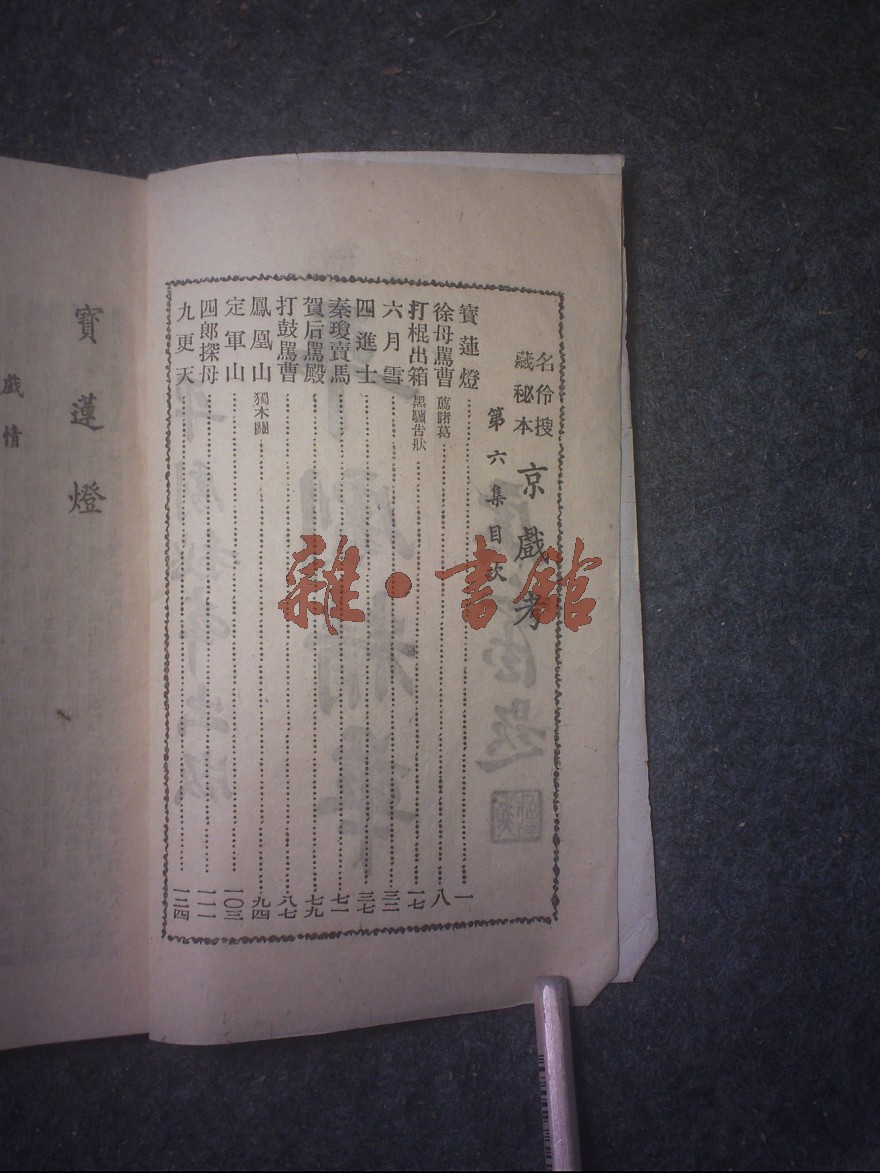 名伶搜
藏秘本
京戲考
第六集目次
寶蓮燈 一
徐母罵曹 薦諸葛 八
打棍出箱 黑驢告狀 一七
六月雪 三二
四進士 三七
秦瓊賣馬 七一
賀后罵殿 七九
打鼓罵曹 八七
鳳凰山 獨木關 九四
定軍山 一〇三
四郎探母 一一一
九更天 一二四
寶蓮燈
戲情
雜·書館